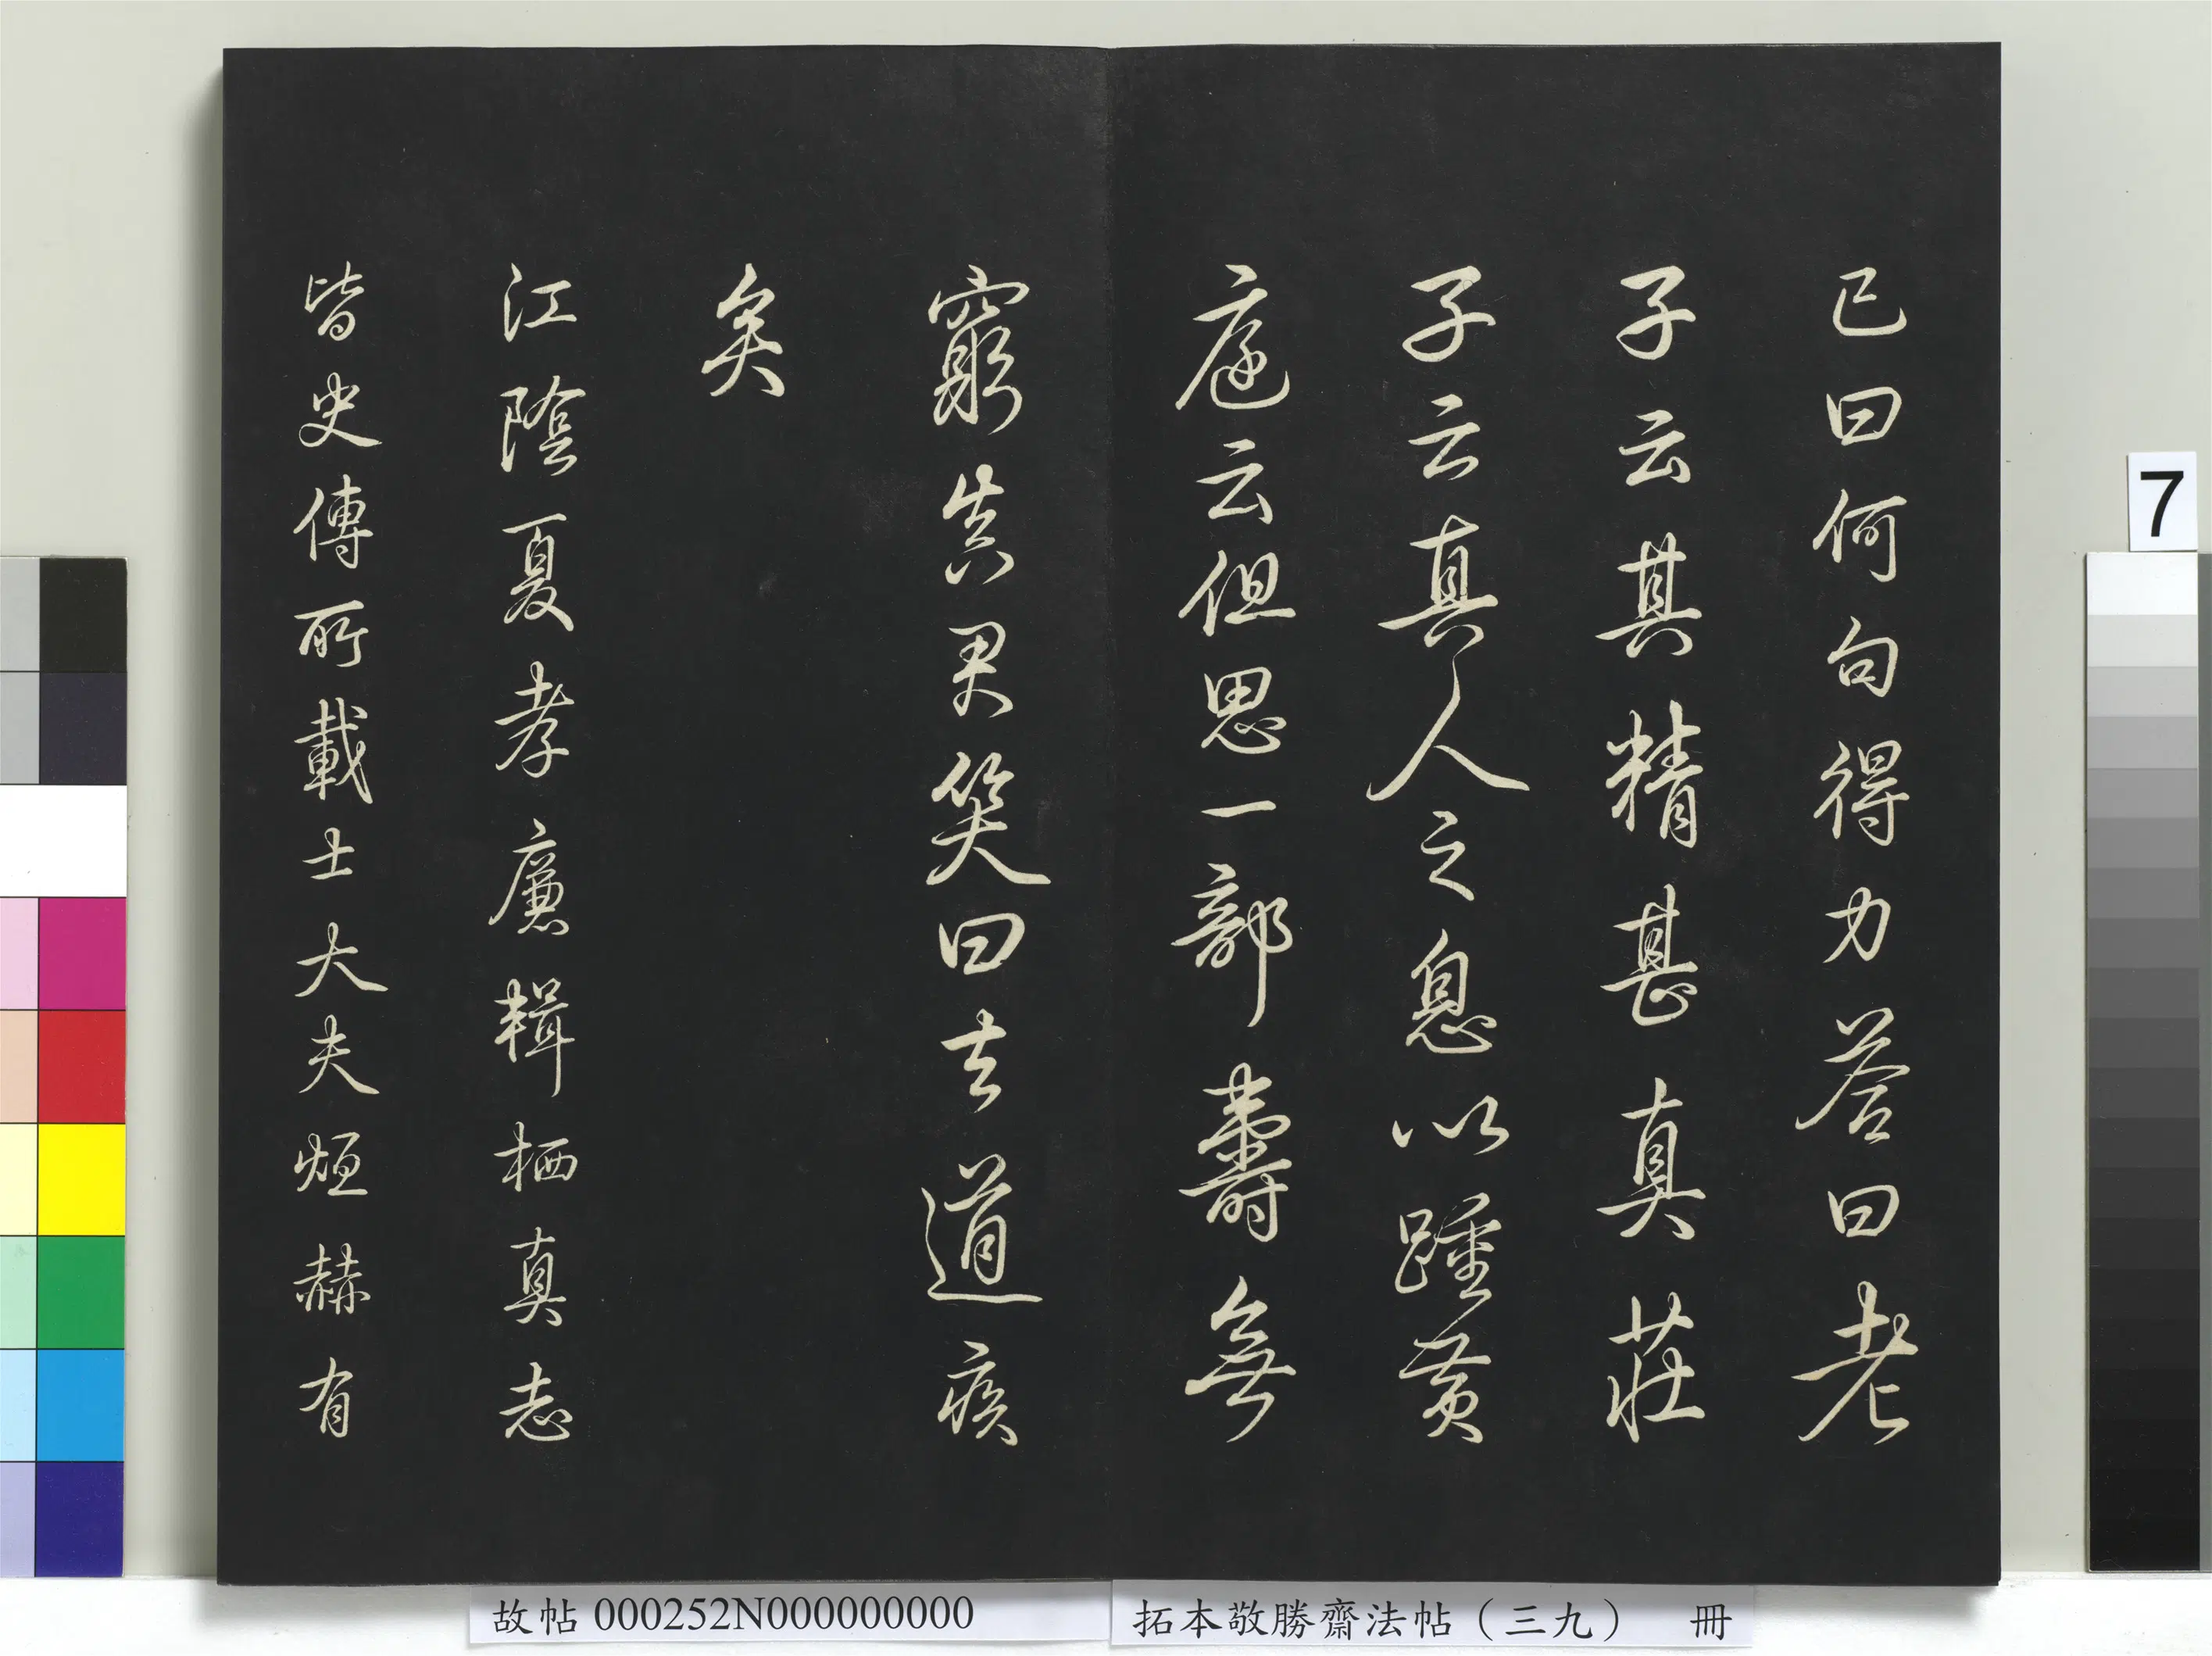 已曰何句得力答曰老
子云其精甚真莊
子云真人之息以踵黃
庭云但思一部壽無
窮真君笑曰去道遠
矣
江陰夏孝廉輯栖真志
皆史傳所載士大夫烜赫有
7
故帖 000252N000000000
拓本敬勝齋法帖（三九） 冊